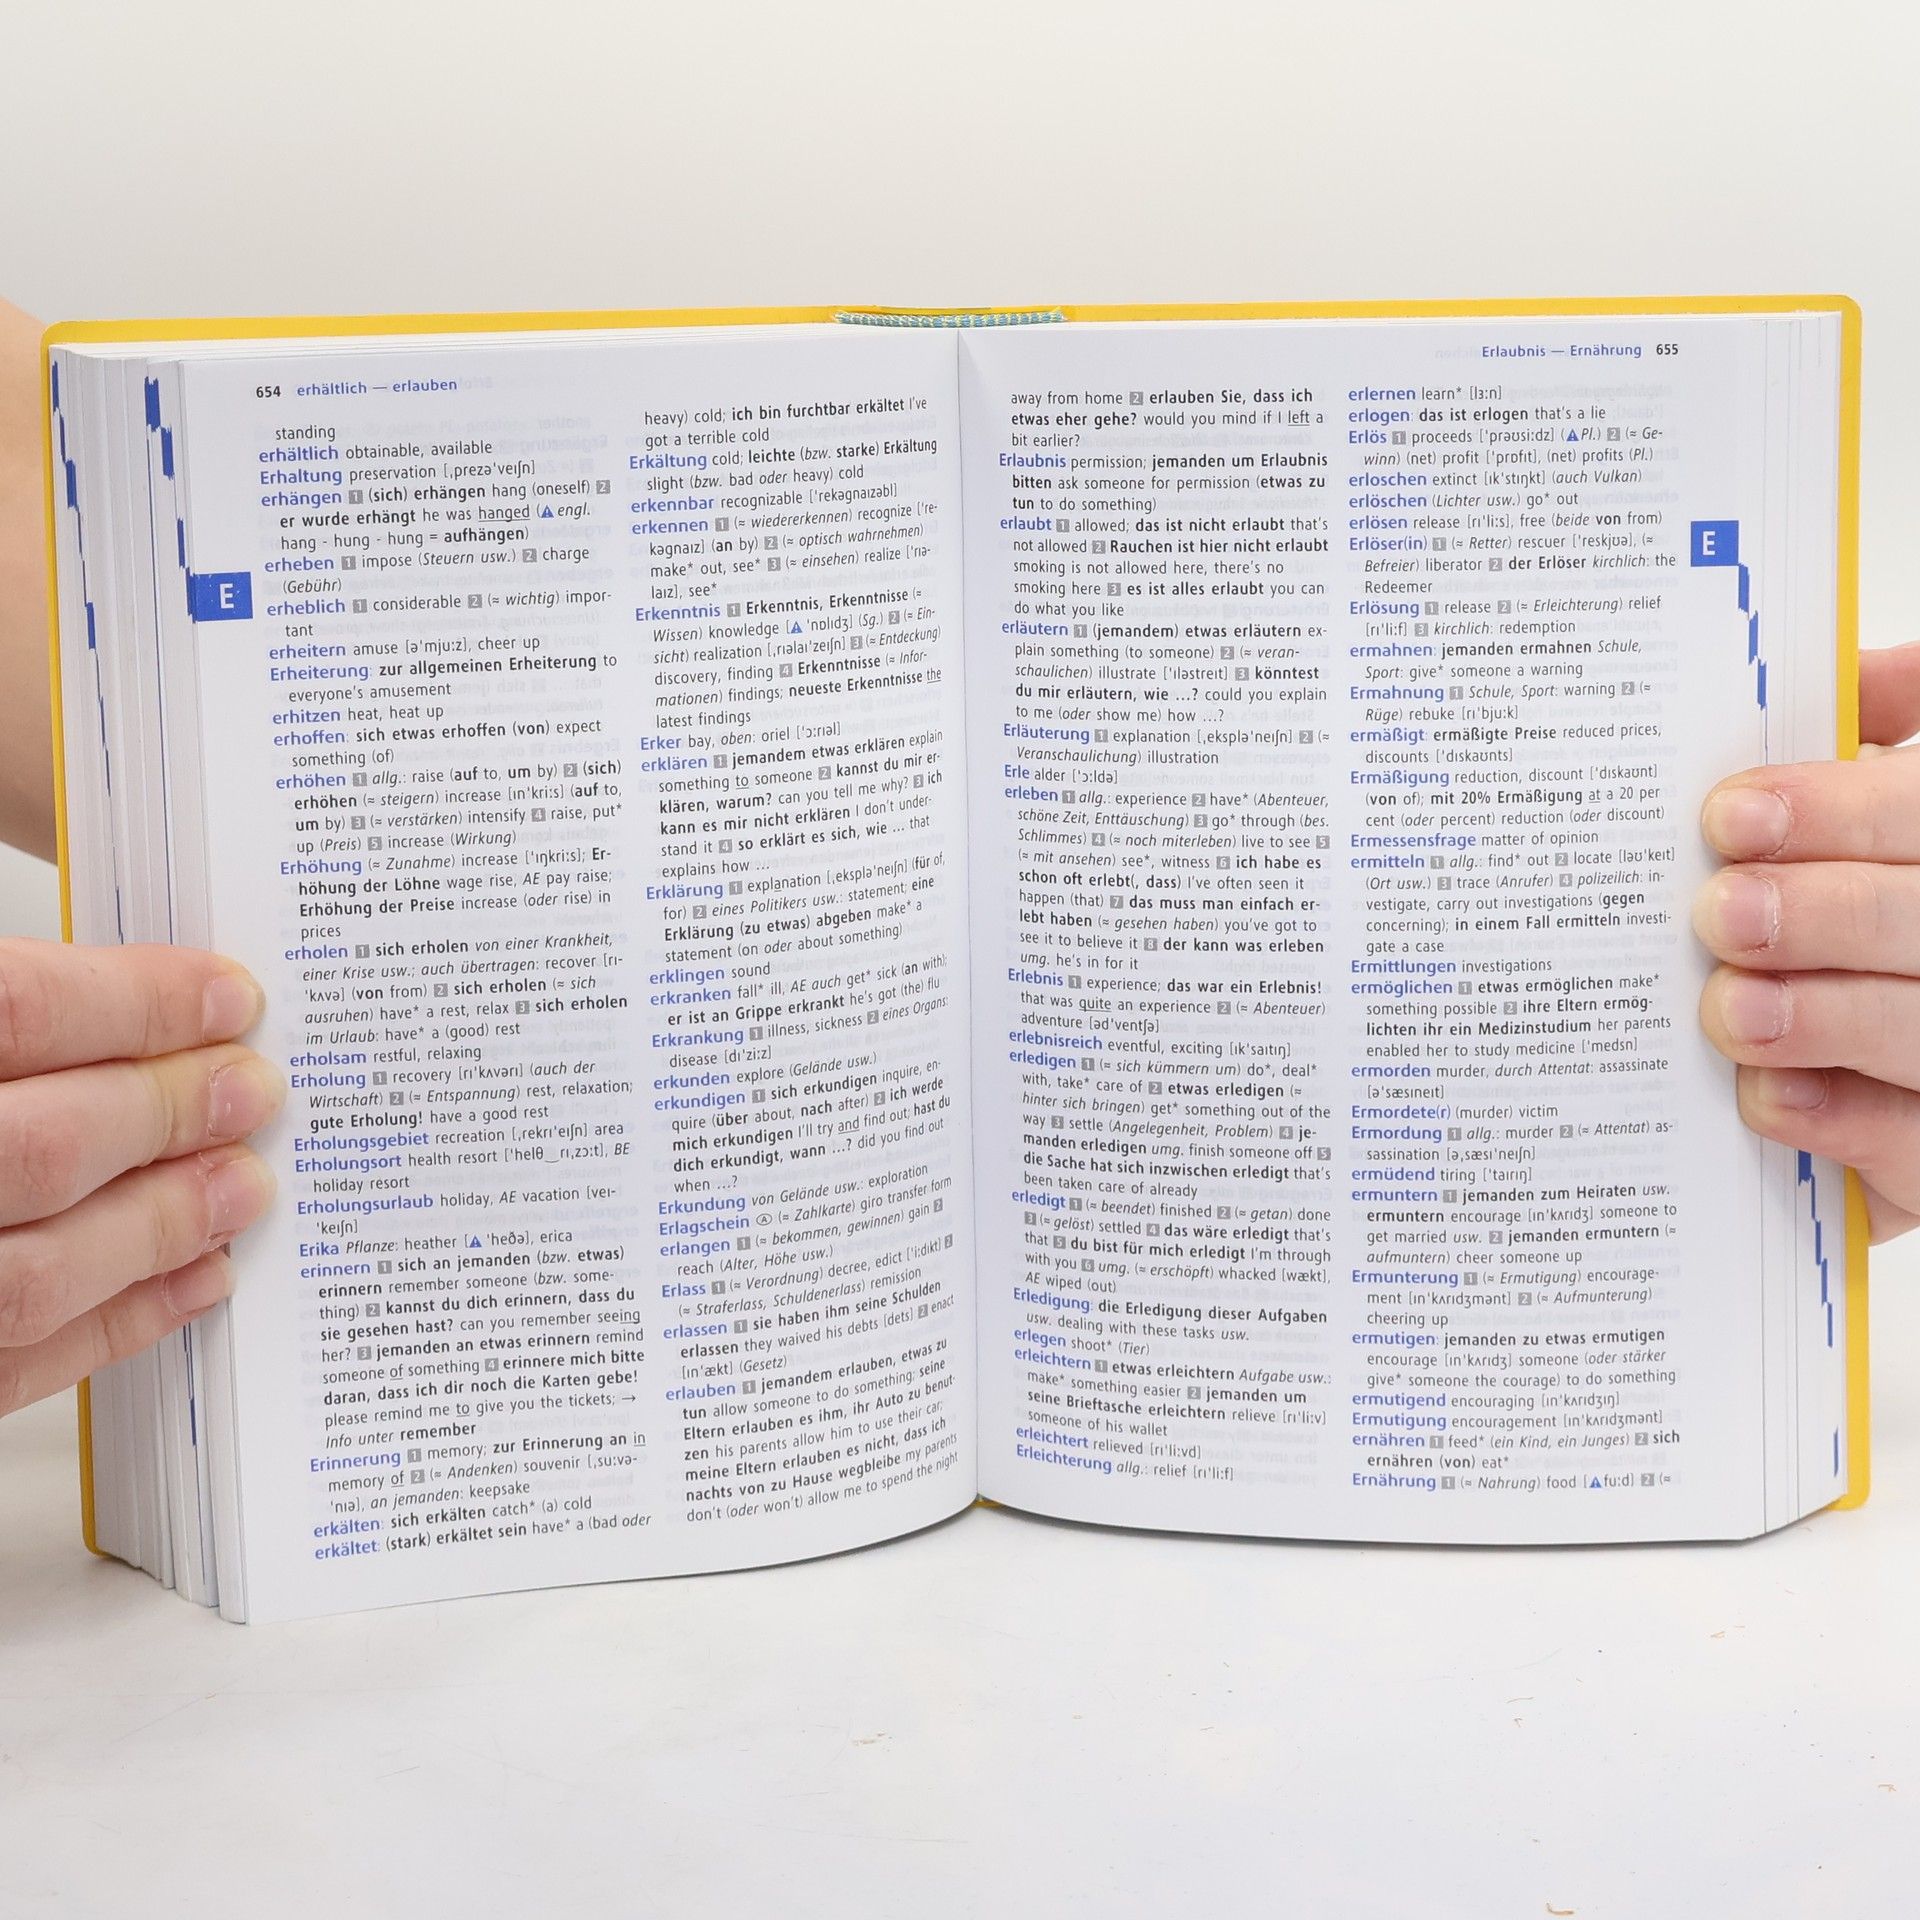 654 erhältlich — erlauben
standing
erhältlich obtainable, available
Erhaltung preservation [ˌprezəˈveɪʃn]
erhängen 1 (sich) erhängen hang (oneself) 2
er wurde erhängt he was hanged (⚠ engl.
hang - hung - hung = aufhängen)
erheben 1 impose (Steuern usw.) 2 charge
(Gebühr)
erheblich 1 considerable 2 (≈ wichtig) impor-
tant
erheitern amuse [əˈmjuːz], cheer up
Erheiterung: zur allgemeinen Erheiterung to
everyone's amusement
erhitzen heat, heat up
erhoffen: sich etwas erhoffen (von) expect
something (of)
erhöhen 1 allg.: raise (auf to, um by) 2 (sich)
erhöhen (≈ steigern) increase [ɪnˈkriːs] (auf to,
um by) 3 (≈ verstärken) intensify 4 raise, put*
up (Preis) 5 increase (Wirkung)
Erhöhung (≈ Zunahme) increase [ˈɪŋkriːs]; Er-
höhung der Löhne wage rise, AE pay raise;
Erhöhung der Preise increase (oder rise) in
prices
erholen 1 sich erholen von einer Krankheit,
einer Krise usw.; auch übertragen: recover [rɪ-
ˈkʌvə] (von from) 2 sich erholen (≈ sich
ausruhen) have* a rest, relax 3 sich erholen
im Urlaub: have* a (good) rest
erholsam restful, relaxing
Erholung 1 recovery [rɪˈkʌvərɪ] (auch der
Wirtschaft) 2 (≈ Entspannung) rest, relaxation;
gute Erholung! have a good rest
Erholungsgebiet recreation [ˌrekrɪˈeɪʃn] area
Erholungsort health resort [ˈhelθ‿rɪˌzɔːt], BE
holiday resort
Erholungsurlaub holiday, AE vacation [veɪ-
ˈkeɪʃn]
Erika Pflanze: heather [⚠ ˈheðə], erica
erinnern 1 sich an jemanden (bzw. etwas)
erinnern remember someone (bzw. some-
thing) 2 kannst du dich erinnern, dass du
sie gesehen hast? can you remember seeing
her? 3 jemanden an etwas erinnern remind
someone of something 4 erinnere mich bitte
daran, dass ich dir noch die Karten gebe!
please remind me to give you the tickets; →
Info unter remember
Erinnerung 1 memory; zur Erinnerung an in
memory of 2 (≈ Andenken) souvenir [ˌsuːvə-
ˈnɪə], an jemanden: keepsake
erkälten: sich erkälten catch* (a) cold
erkältet: (stark) erkältet sein have* a (bad oder
heavy) cold; ich bin furchtbar erkältet I've
got a terrible cold
Erkältung cold; leichte (bzw. starke) Erkältung
slight (bzw. bad oder heavy) cold
erkennbar recognizable [ˈrekəgnaɪzəbl]
erkennen 1 (≈ wiedererkennen) recognize [ˈre-
kəgnaɪz] (an by) 2 (≈ optisch wahrnehmen)
make* out, see* 3 (≈ einsehen) realize [ˈrɪə-
laɪz], see*
Erkenntnis 1 Erkenntnis, Erkenntnisse (≈
Wissen) knowledge [⚠ ˈnɒlɪdʒ] (Sg.) 2 (≈ Ein-
sicht) realization [ˌrɪəlaɪˈzeɪʃn] 3 (≈ Entdeckung)
discovery, finding 4 Erkenntnisse (≈ Infor-
mationen) findings; neueste Erkenntnisse the
latest findings
Erker bay, oben: oriel [ˈɔːrɪəl]
erklären 1 jemandem etwas erklären explain
something to someone 2 kannst du mir er-
klären, warum? can you tell me why? 3 ich
kann es mir nicht erklären I don't under-
stand it 4 so erklärt es sich, wie ... that
explains how ...
Erklärung 1 explanation [ˌekspləˈneɪʃn] (für of,
for) 2 eines Politikers usw.: statement; eine
Erklärung (zu etwas) abgeben make* a
statement (on oder about something)
erklingen sound
erkranken fall* ill, AE auch get* sick (an with);
er ist an Grippe erkrankt he's got (the) flu
Erkrankung 1 illness, sickness 2 eines Organs:
disease [dɪˈziːz]
erkunden explore (Gelände usw.)
erkundigen 1 sich erkundigen inquire, en-
quire (über about, nach after) 2 ich werde
mich erkundigen I'll try and find out; hast du
dich erkundigt, wann ...? did you find out
when ...?
Erkundung von Gelände usw.: exploration
Erlagschein Ⓐ (≈ Zahlkarte) giro transfer form
erlangen 1 (≈ bekommen, gewinnen) gain 2
reach (Alter, Höhe usw.)
Erlass 1 (≈ Verordnung) decree, edict [ˈiːdɪkt] 2
(≈ Straferlass, Schuldenerlass) remission
erlassen 1 sie haben ihm seine Schulden
erlassen they waived his debts [dets] 2 enact
[ɪnˈækt] (Gesetz)
erlauben 1 jemandem erlauben, etwas zu
tun allow someone to do something; seine
Eltern erlauben es ihm, ihr Auto zu benut-
zen his parents allow him to use their car;
meine Eltern erlauben es nicht, dass ich
nachts von zu Hause wegbleibe my parents
don't (oder won't) allow me to spend the night
Erlaubnis — Ernährung 655
away from home 2 erlauben Sie, dass ich
etwas eher gehe? would you mind if I left a
bit earlier?
Erlaubnis permission; jemanden um Erlaubnis
bitten ask someone for permission (etwas zu
tun to do something)
erlaubt 1 allowed; das ist nicht erlaubt that's
not allowed 2 Rauchen ist hier nicht erlaubt
smoking is not allowed here, there's no
smoking here 3 es ist alles erlaubt you can
do what you like
erläutern 1 (jemandem) etwas erläutern ex-
plain something (to someone) 2 (≈ veran-
schaulichen) illustrate [ˈɪləstreɪt] 3 könntest
du mir erläutern, wie ...? could you explain
to me (oder show me) how ...?
Erläuterung 1 explanation [ˌekspləˈneɪʃn] 2 (≈
Veranschaulichung) illustration
Erle alder [ˈɔːldə]
erleben 1 allg.: experience 2 have* (Abenteuer,
schöne Zeit, Enttäuschung) 3 go* through (bes.
Schlimmes) 4 (≈ noch miterleben) live to see 5
(≈ mit ansehen) see*, witness 6 ich habe es
schon oft erlebt(, dass) I've often seen it
happen (that) 7 das muss man einfach er-
lebt haben (≈ gesehen haben) you've got to
see it to believe it 8 der kann was erleben
umg. he's in for it
Erlebnis 1 experience; das war ein Erlebnis!
that was quite an experience 2 (≈ Abenteuer)
adventure [ədˈventʃə]
erlebnisreich eventful, exciting [ɪkˈsaɪtɪŋ]
erledigen 1 (≈ sich kümmern um) do*, deal*
with, take* care of 2 etwas erledigen (≈
hinter sich bringen) get* something out of the
way 3 settle (Angelegenheit, Problem) 4 je-
manden erledigen umg. finish someone off 5
die Sache hat sich inzwischen erledigt that's
been taken care of already
erledigt 1 (≈ beendet) finished 2 (≈ getan) done
3 (≈ gelöst) settled 4 das wäre erledigt that's
that 5 du bist für mich erledigt I'm through
with you 6 umg. (≈ erschöpft) whacked [wækt],
AE wiped (out)
Erledigung: die Erledigung dieser Aufgaben
usw. dealing with these tasks usw.
erlegen shoot* (Tier)
erleichtern 1 etwas erleichtern Aufgabe usw.:
make* something easier 2 jemanden um
seine Brieftasche erleichtern relieve [rɪˈliːv]
someone of his wallet
erleichtert relieved [rɪˈliːvd]
Erleichterung allg.: relief [rɪˈliːf]
erlernen learn* [lɜːn]
erlogen: das ist erlogen that's a lie
Erlös 1 proceeds [ˈprəʊsiːdz] (⚠ Pl.) 2 (≈ Ge-
winn) (net) profit [ˈprɒfɪt], (net) profits (Pl.)
erloschen extinct [ɪkˈstɪŋkt] (auch Vulkan)
erlöschen (Lichter usw.) go* out
erlösen release [rɪˈliːs], free (beide von from)
Erlöser(in) 1 (≈ Retter) rescuer [ˈreskjʊə], (≈
Befreier) liberator 2 der Erlöser kirchlich: the
Redeemer
Erlösung 1 release 2 (≈ Erleichterung) relief
[rɪˈliːf] 3 kirchlich: redemption
ermahnen: jemanden ermahnen Schule,
Sport: give* someone a warning
Ermahnung 1 Schule, Sport: warning 2 (≈
Rüge) rebuke [rɪˈbjuːk]
ermäßigt: ermäßigte Preise reduced prices,
discounts [ˈdɪskaʊnts]
Ermäßigung reduction, discount [ˈdɪskaʊnt]
(von of); mit 20% Ermäßigung at a 20 per
cent (oder percent) reduction (oder discount)
Ermessensfrage matter of opinion
ermitteln 1 allg.: find* out 2 locate [ləʊˈkeɪt]
(Ort usw.) 3 trace (Anrufer) 4 polizeilich: in-
vestigate, carry out investigations (gegen
concerning); in einem Fall ermitteln investi-
gate a case
Ermittlungen investigations
ermöglichen 1 etwas ermöglichen make*
something possible 2 ihre Eltern ermög-
lichten ihr ein Medizinstudium her parents
enabled her to study medicine [ˈmedsn]
ermorden murder, durch Attentat: assassinate
[əˈsæsɪneɪt]
Ermordete(r) (murder) victim
Ermordung 1 allg.: murder 2 (≈ Attentat) as-
sassination [əˌsæsɪˈneɪʃn]
ermüdend tiring [ˈtaɪrɪŋ]
ermuntern 1 jemanden zum Heiraten usw.
ermuntern encourage [ɪnˈkʌrɪdʒ] someone to
get married usw. 2 jemanden ermuntern (≈
aufmuntern) cheer someone up
Ermunterung 1 (≈ Ermutigung) encourage-
ment [ɪnˈkʌrɪdʒmənt] 2 (≈ Aufmunterung)
cheering up
ermutigen: jemanden zu etwas ermutigen
encourage [ɪnˈkʌrɪdʒ] someone (oder stärker
give* someone the courage) to do something
ermutigend encouraging [ɪnˈkʌrɪdʒɪŋ]
Ermutigung encouragement [ɪnˈkʌrɪdʒmənt]
ernähren 1 feed* (ein Kind, ein Junges) 2 sich
ernähren (von) eat*
Ernährung 1 (≈ Nahrung) food [⚠ fuːd] 2 (≈
E
E